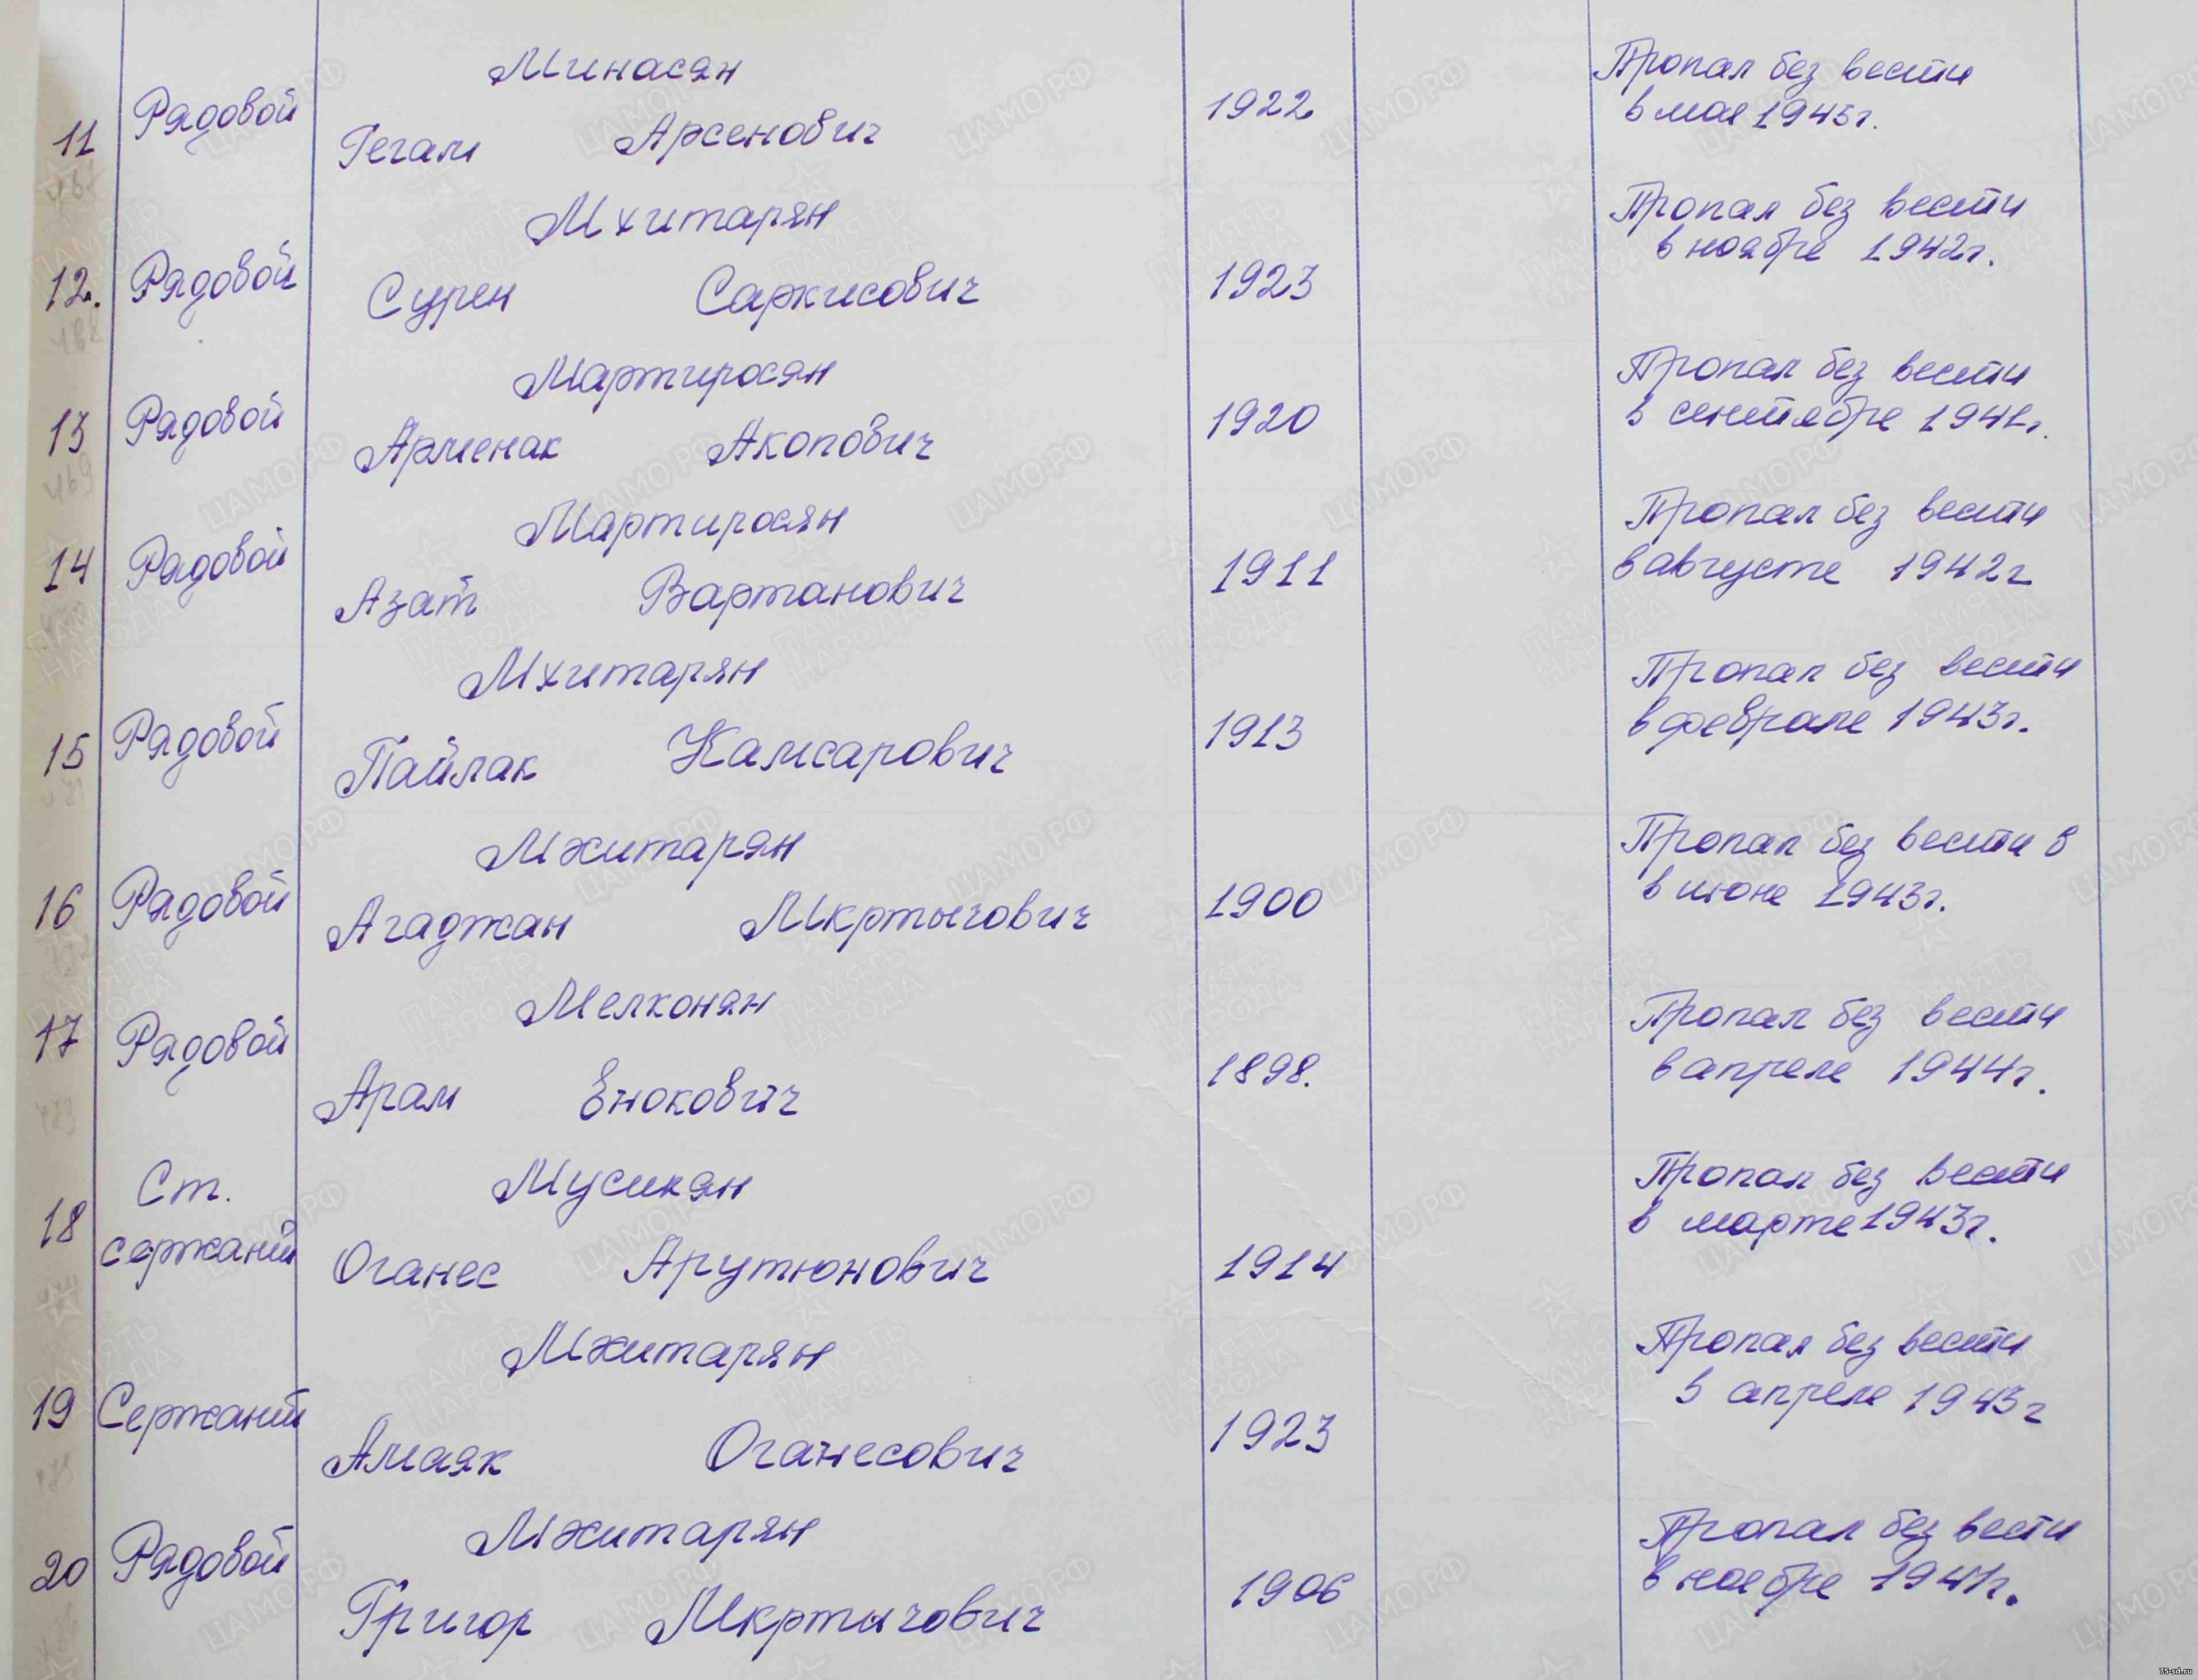 Минасян
11 Рядовой Гегам Арсенович 1922 Пропал без вести
в мае 1945г.
Мхитарян
12. Рядовой Сурен Саркисович 1923 Пропал без вести
в ноябре 1942г.
Мартиросян
13 Рядовой Арменак Акопович 1920 Пропал без вести
в сентябре
Мартиросян
14 Рядовой Азат Вартанович 1911 Пропал без вести
в августе 1942г
Мхитарян
15 Рядовой Пайлак Камсарович 1913 Пропал без вести
в феврале 1943г.
Мхитарян
16 Рядовой Агаджан Мкртычович 1900 Пропал без вести в
в июне 1943г.
Мелконян
17 Рядовой Арам Енокович 1898. Пропал без вести
в апреле 1944г.
Мусикян
18 Ст.
сержант Оганес Арутюнович 1914 Пропал без вести
в марте 1943г.
Мхитарян
19 Сержант Амаяк Оганесович 1923 Пропал без вести
в апреле 1943г
Мхитарян
20 Рядовой Григор Мкртычович 1906 Пропал без вести
в ноябре 1941г.
ЦАМО РФ
ПАМЯТЬ
НАРОДА
75-sd.ru